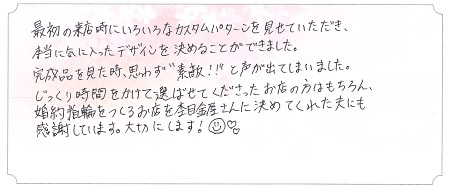 最初の来店時にいろいろなカスタムパターンを見せていただき、
本当に気に入ったデザインを決めることができました。
完成品を見た時、思わず"素敵!!"と声が出てしまいました。
じっくり時間をかけて選ばせてくださったお店の方はもちろん、
婚約指輪をつくるお店を杢目金屋さんに決めてくれた夫にも
感謝しています。大切にします!